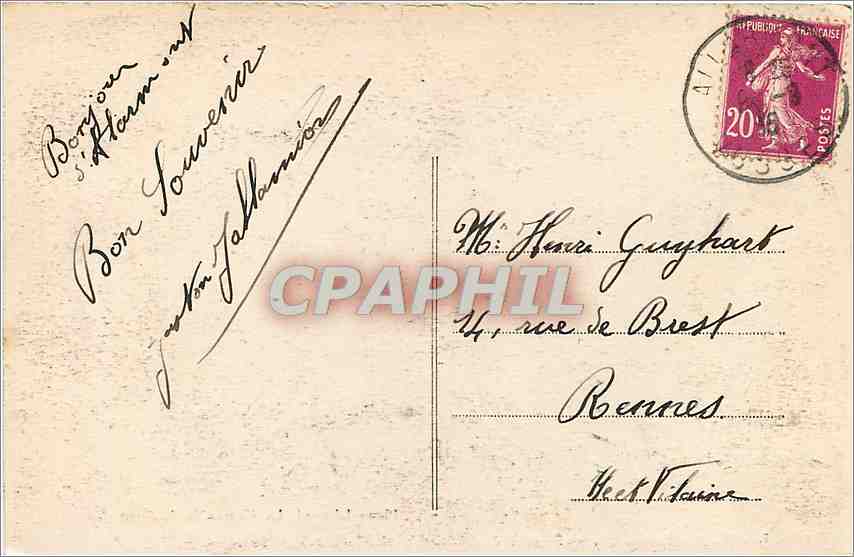 Bonjour
d'Allarmont
Bon Souvenir
Gaston
CPAPHIL
RÉPUBLIQUE FRANÇAISE
20
POSTES
Mr Henri Guyhart
14, rue de Brest
Rennes
Ile et Vilaine